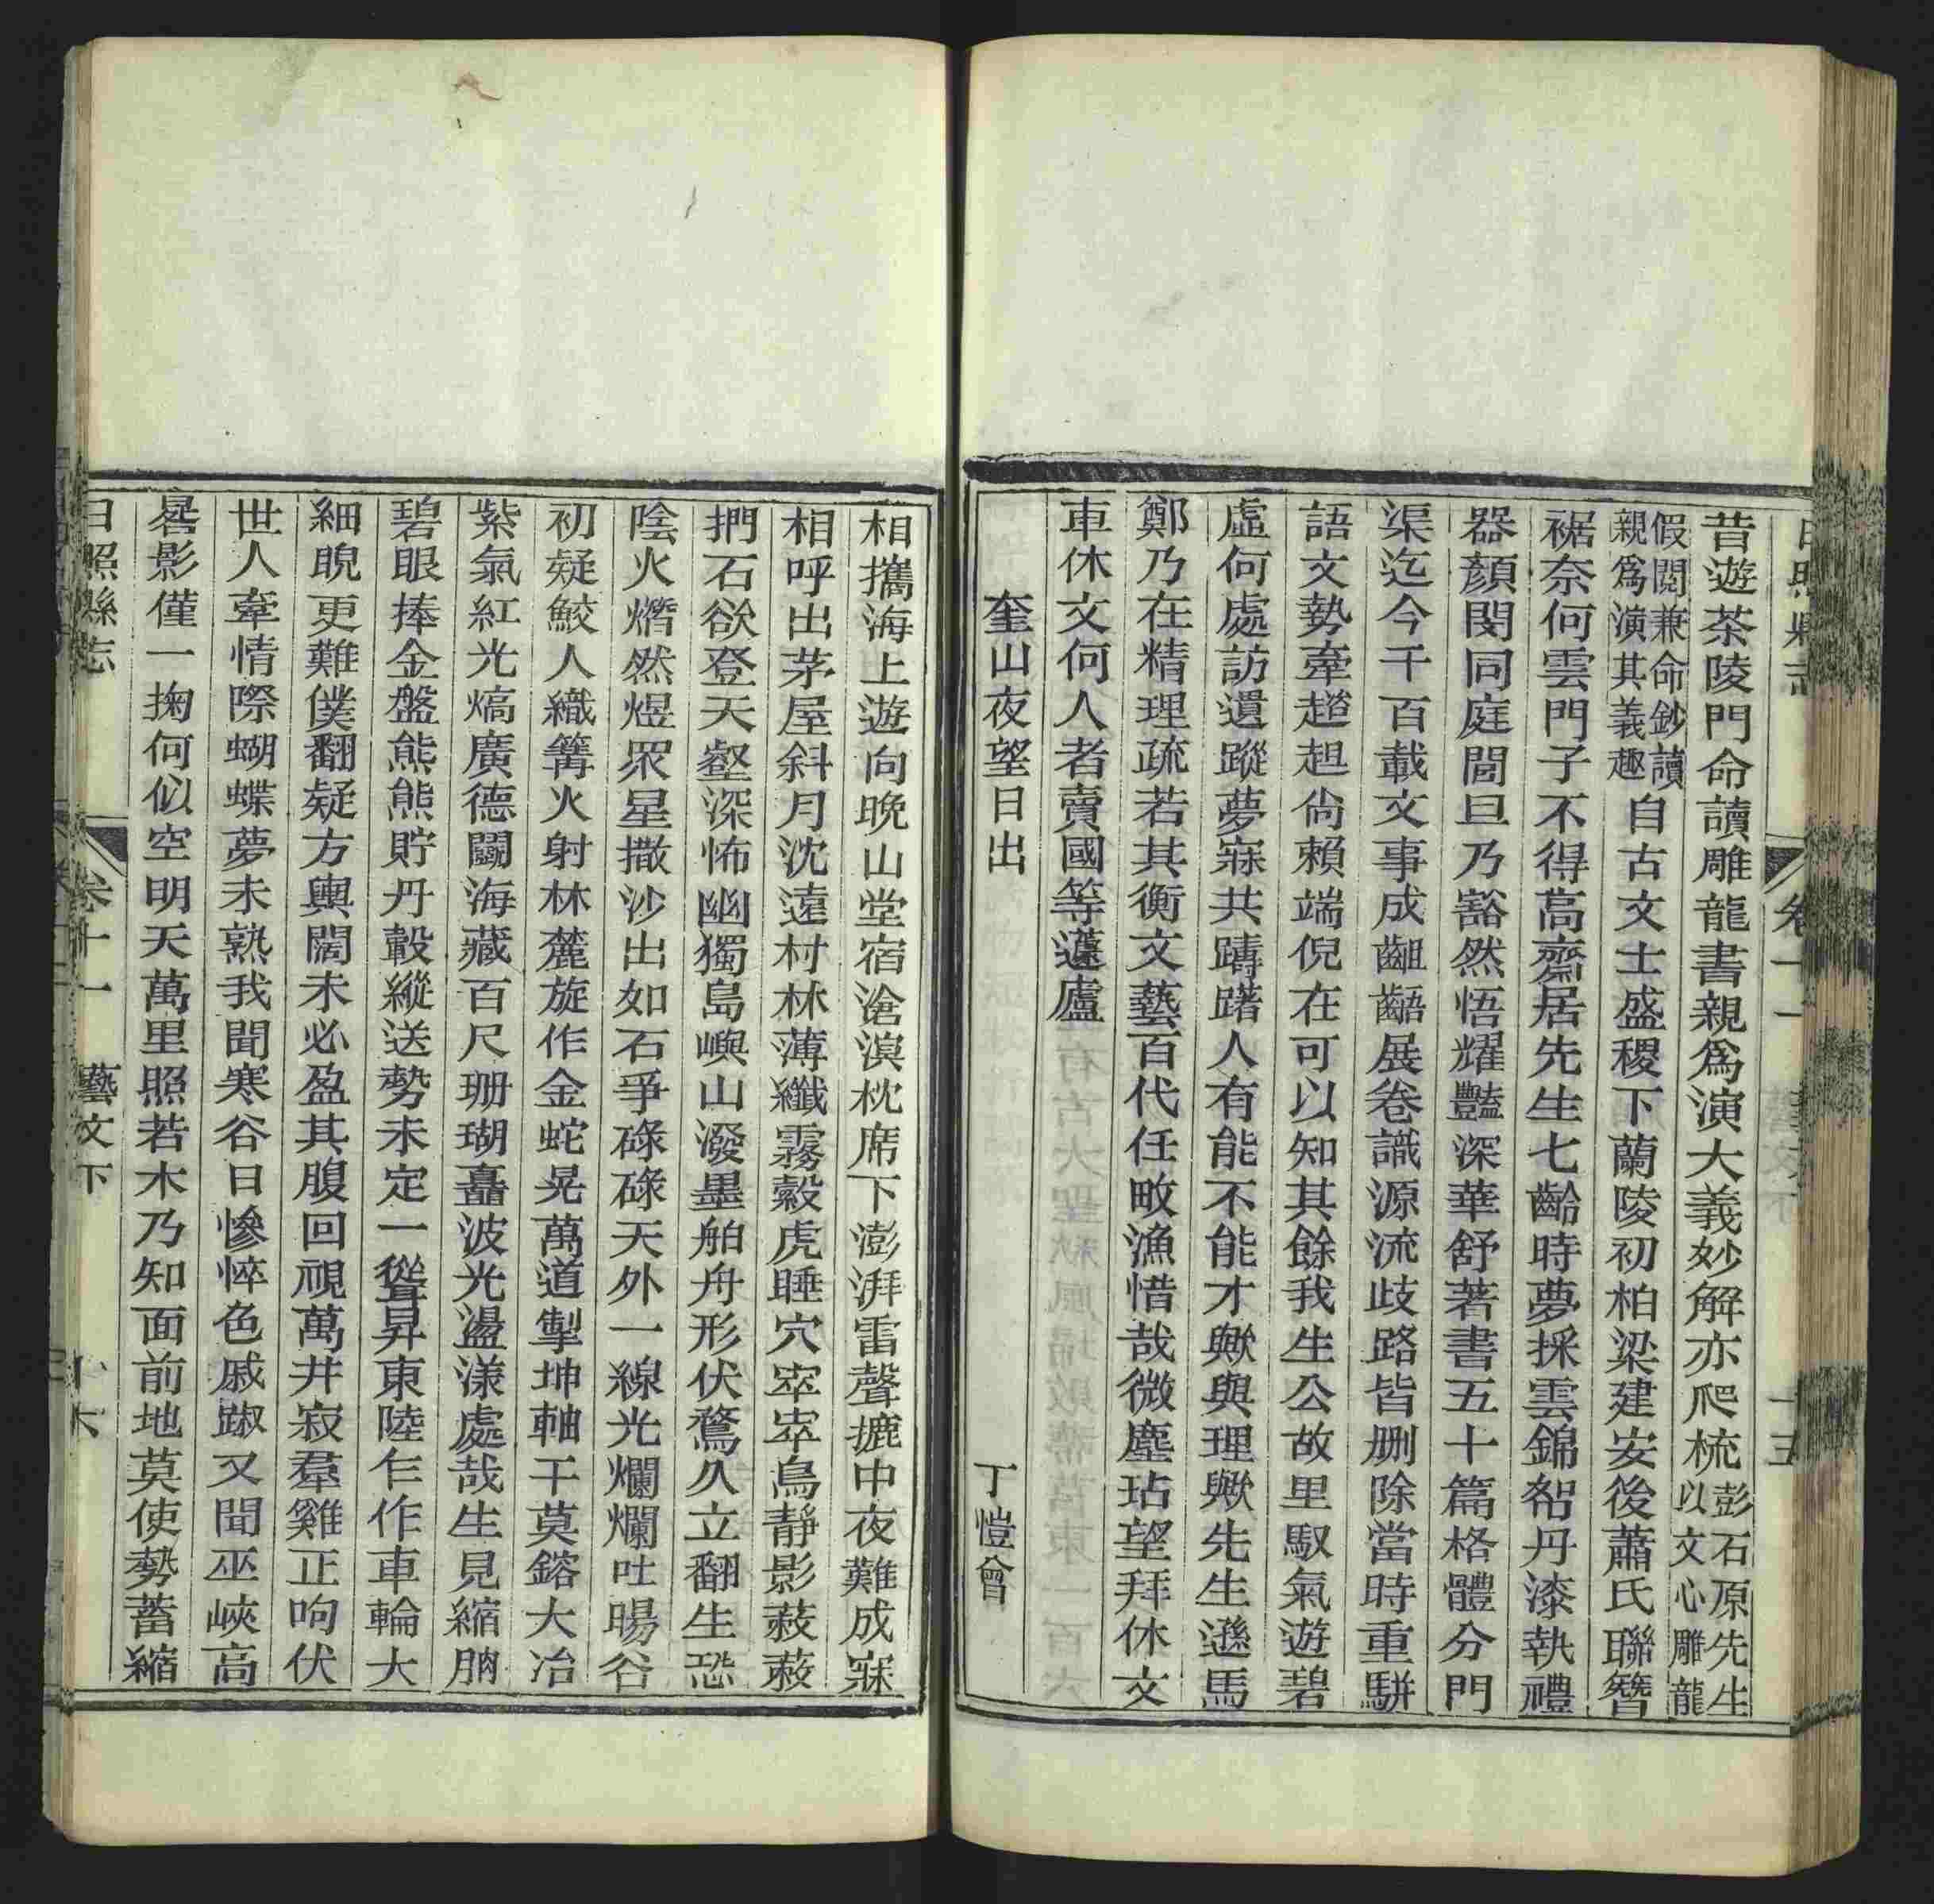 日照縣志
卷十一
藝文下
十五
昔遊茶陵門命讀雕龍書親爲演大義妙解亦爬梳彭石原先生
以文心雕龍
假閱兼命鈔讀
親爲演其義趣自古文士盛稷下蘭陵初柏梁建安後蕭氏聯簪
裾奈何雲門子不得高齋居先生七齡時夢採雲錦帤丹漆執禮
器顏閔同庭閭旦乃豁然悟耀豔深華舒著書五十篇格體分門
渠迄今千百載文事成齟齬展卷識源流歧路皆刪除當時重駢
語文勢牽趦趄尙賴端倪在可以知其餘我生公故里馭氣遊碧
虛何處訪遺蹤夢寐共躊躇人有能不能才歟與理歟先生遜馬
鄭乃在精理疏若其衡文藝百代任畋漁惜哉微塵玷望拜休文
車休文何人者賣國等蘧廬
奎山夜望日出
丁愷曾
相攜海上遊向晚山堂宿滄溟枕席下澎湃雷聲摝中夜難成寐
相呼出茅屋斜月沈遠村林薄纖霧縠虎睡穴窣窣鳥靜影蔌蔌
捫石欲登天壑深怖幽獨島嶼山潑墨舶舟形伏鶩久立翻生恐
陰火熸然煜眾星撒沙出如石爭碌碌天外一線光爛爛吐暘谷
初疑鮫人織篝火射林麓旋作金蛇晃萬道掣坤軸干莫鎔大冶
紫氣紅光熇廣德鬭海藏百尺珊瑚矗波光盪漾處哉生見縮朒
碧眼捧金盤熊熊貯丹轂縱送勢未定一聳昇東陸乍作車輪大
細睨更難僕翻疑方輿闊未必盈其腹回視萬井寂羣雞正呴伏
世人牽情際蝴蝶夢未熟我聞寒谷日慘悴色戚踧又聞巫峽高
晷影僅一掬何似空明天萬里照若木乃知面前地莫使勢蓄縮
日照縣志
卷十一
藝文下
十六